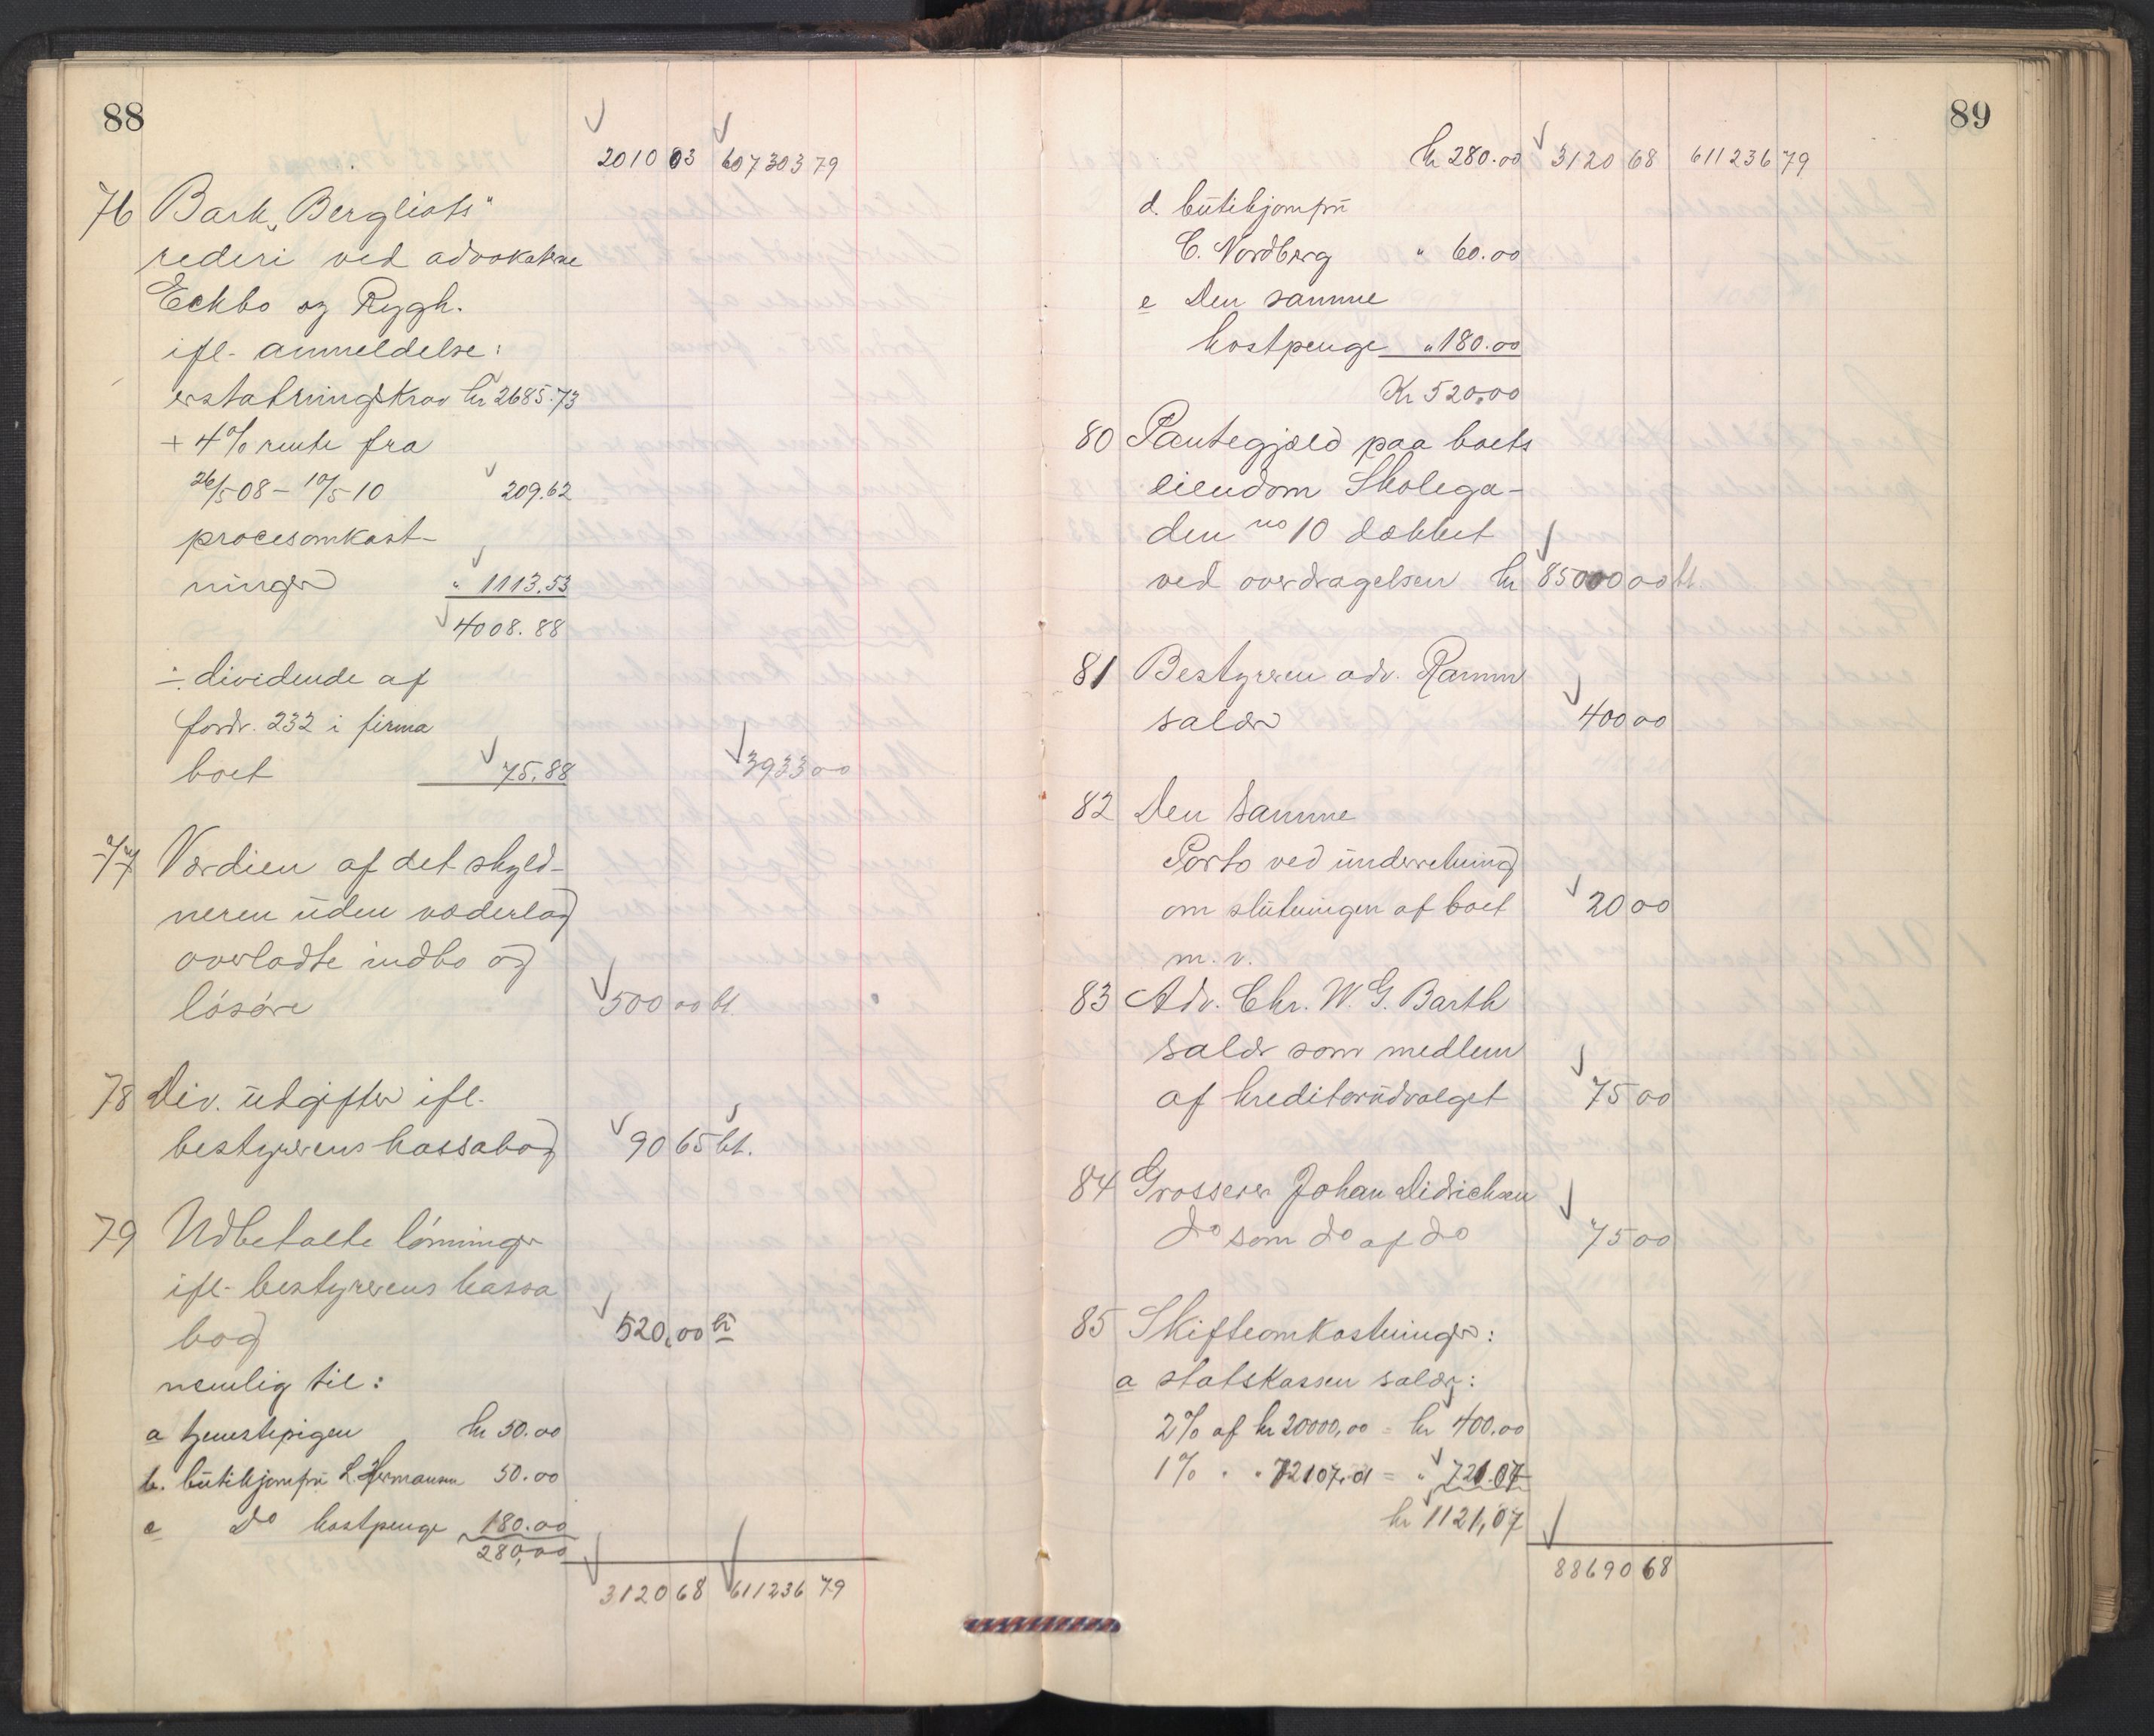 88
2010 03 607303 79
76 Bark „Bergliots"
rederi ved advokaterne
Eckbo og Rygh.
ifl. anmeldelse:
erstatningskrav kr 2685.73
+ 4% rente fra
26/5 08 – 10/5 10 209.62
procesomkost-
ninger " 1113.53
4008.88
÷ dividende af
fordr. 232 i firma
boet 75.88 3933 00
77 Værdien af det skyld-
neren uden vederlag
overladte indbo og
løsøre 500 00 bt.
78 Div. utgifter ifl.
bestyrerens kassabog 90 65 bt.
79 Udbetalte lønninger
ifl. bestyrerens kassa
bog 520,00 bt
nemlig til:
a tjenestepigen kr 50.00
b. butikjomfru L. Hermansen 50.00
c Do kostpenge 180.00
280,00
3120 68 611236 79
89
kr 280.00 3120 68 611236 79
d. butikjomfru
C. Nordberg " 60.00
e Den samme
kostpenge " 180.00
Kr 520.00
80 Pantegjæld paa boets
eiendom Skolega-
den no 10 dækket
ved overdragelsen kr 85000 00 bt.
81 Bestyreren adv. Ramm
salær 400 00
82 Den samme
Porto ved underretning
om slutningen af boet 20 00
m. v.
83 Adv. Chr. W. G. Barth
salær som medlem
af kreditorudvalget 75 00
84 Grosserer Johan Didrichsen
do som do af do 75 00
85 Skifteomkostninger:
a statskassen salær:
2% af kr 20000,00 = kr 400.00
1% " " 72107.01 = " 721.07
kr 1121,07
88690 68